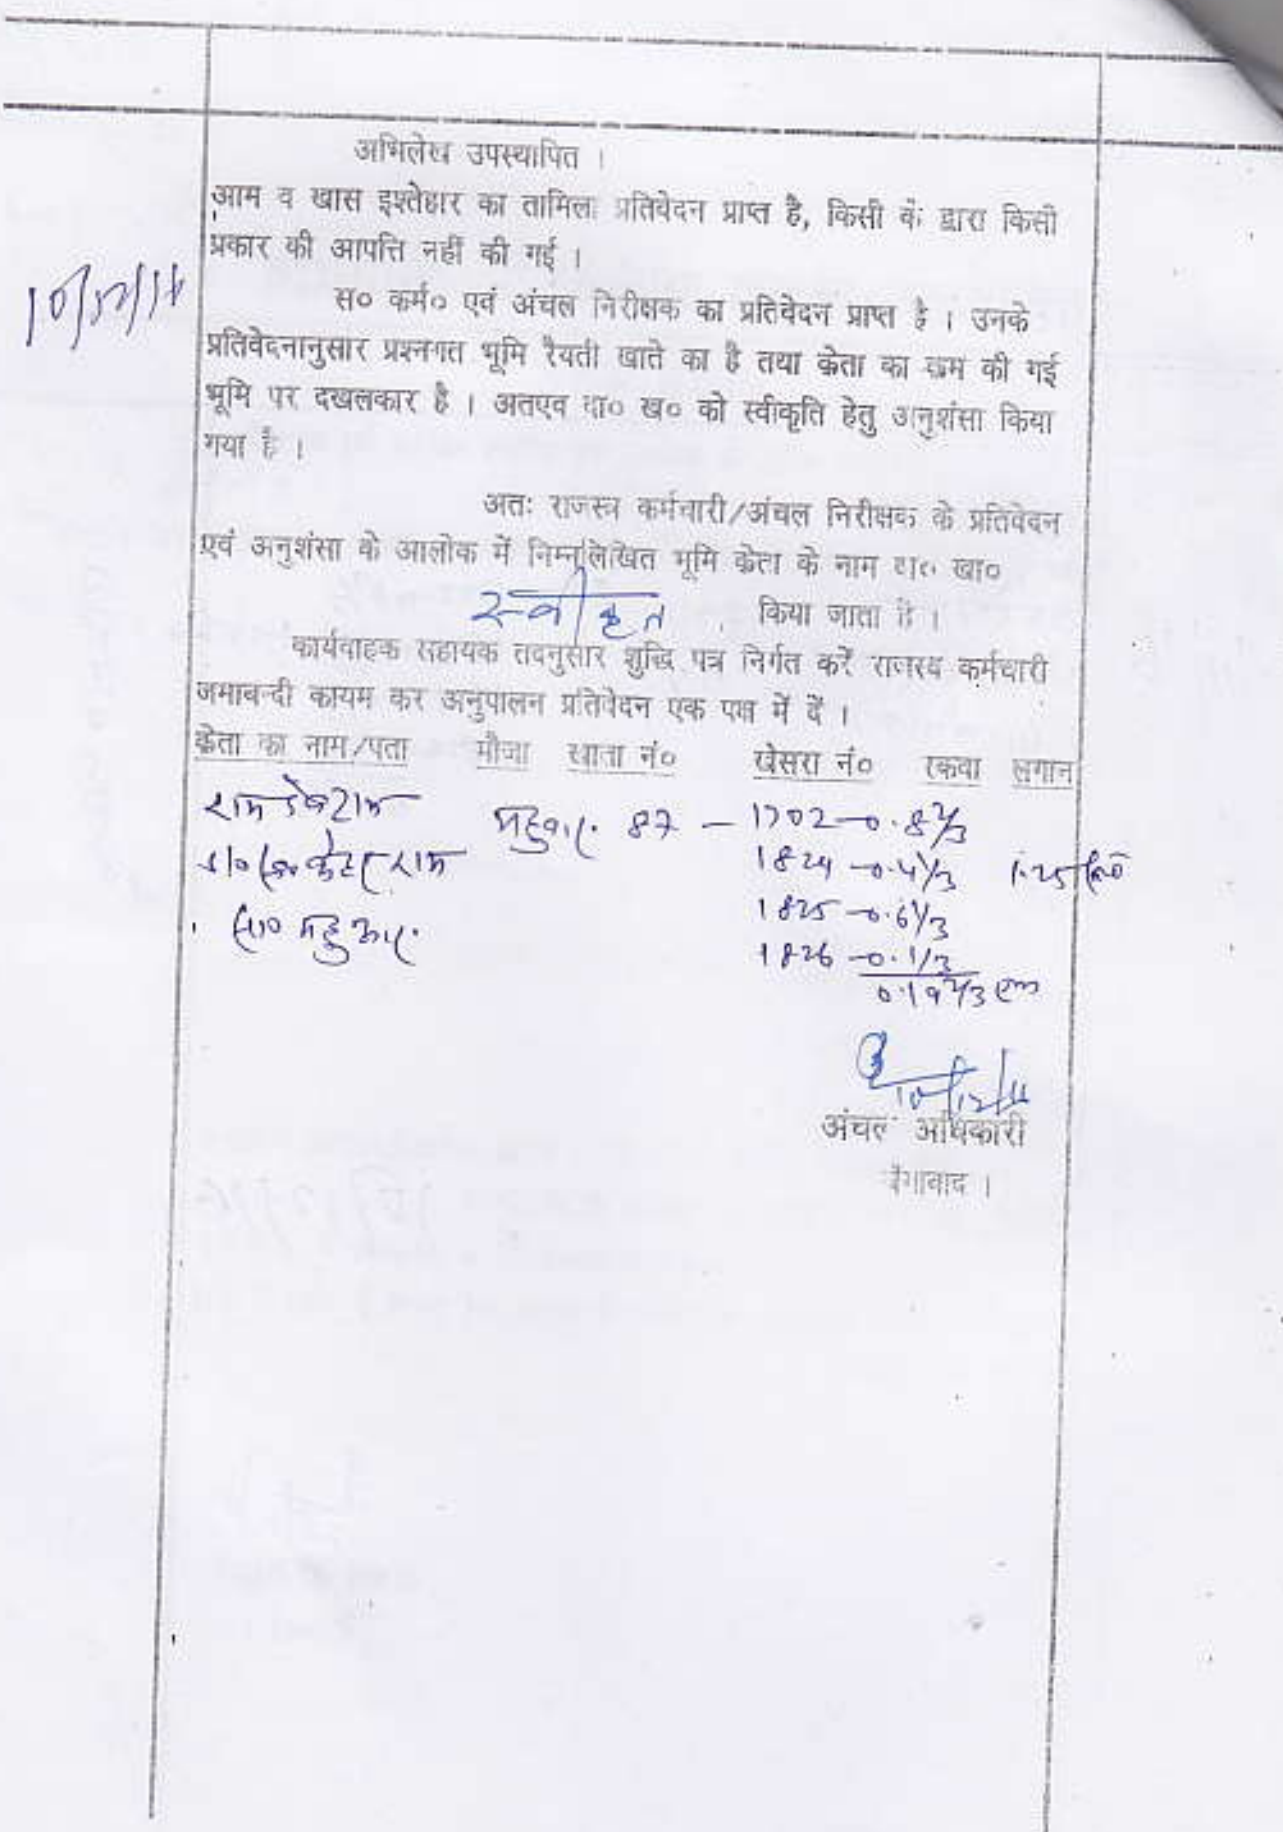 अभिलेख उपस्थापित ।
आम व खास इश्तेहार का तामिला प्रतिवेदन प्राप्त है, किसी के द्वारा किसी
प्रकार की आपत्ति नहीं की गई ।
स० कर्म० एवं अंचल निरीक्षक का प्रतिवेदन प्राप्त है । उनके
प्रतिवेदनानुसार प्रश्नगत भूमि रैयती खाते का है तथा क्रेता का की गई
भूमि पर दखलकार है । अतएव दा० ख० को स्वीकृति हेतु अनुशंसा किया
गया है ।
अतः राजस्व कर्मचारी/अंचल निरीक्षक के प्रतिवेदन
एवं अनुशंसा के आलोक में निम्नलिखित भूमि क्रेता के नाम दा० खा०
स्वीकृत किया जाता है ।
कार्यवाहक सहायक तदनुसार शुद्धि पत्र निर्गत करें राजस्व कर्मचारी
जमाबन्दी कायम कर अनुपालन प्रतिवेदन एक पक्ष में दें ।
क्रेता का नाम/पता मौजा खाता नं० खेसरा नं० रकवा लगान
87 – 1702 – 0.8 2/3
राम 1824 – 0.4 1/3 1.25
1825 – 0.6 1/3
सा० 1826 – 0.1/3
0.19 2/3
10/12/
अंचल अधिकारी
बेंगाबाद ।